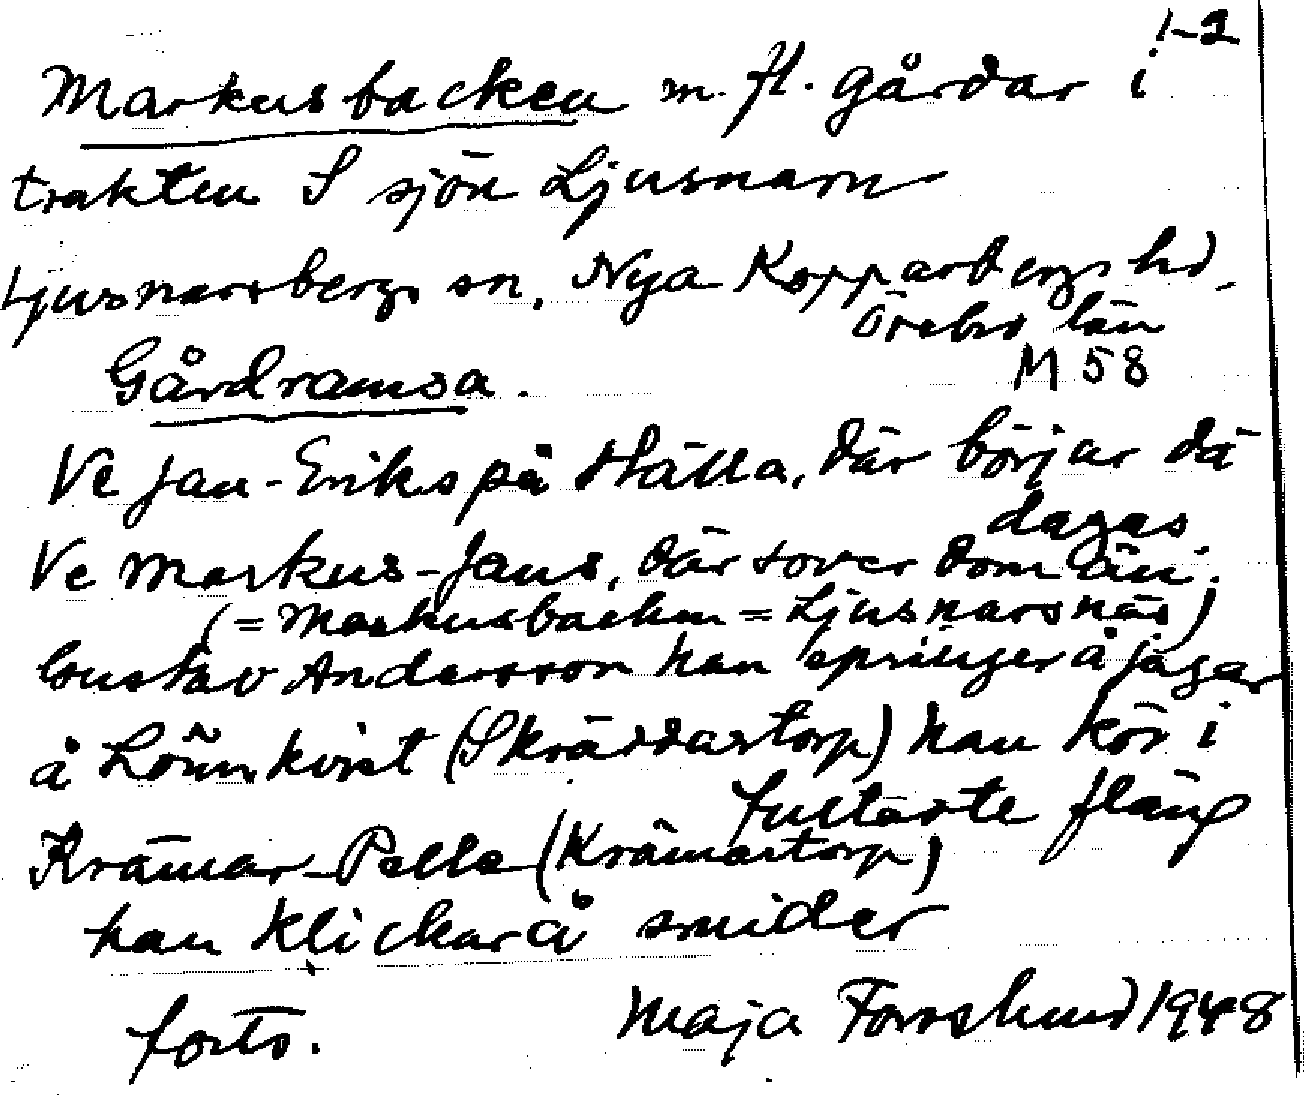 1-2
Markusbacken m. fl. gårdar i
trakten S sjön Ljusnaren
Ljusnarsbergs sn, Nya Kopparbergs hd.
Örebro län
M 58
Gårdramsa.
Ve Jan-Eriks på Hälla, där börjar dä
dagas
Ve Markus-Jans, där sover dom än.
(= Markusbacken = Ljusnarsnäs)
Gustav Andersson han springer å jagar
å Lönnkvist (Skräddartorp) han kör i
fullaste fläng
Krämar-Pelle (Krämartorp)
han klickar å smider
forts. Maja Forsslund 1948